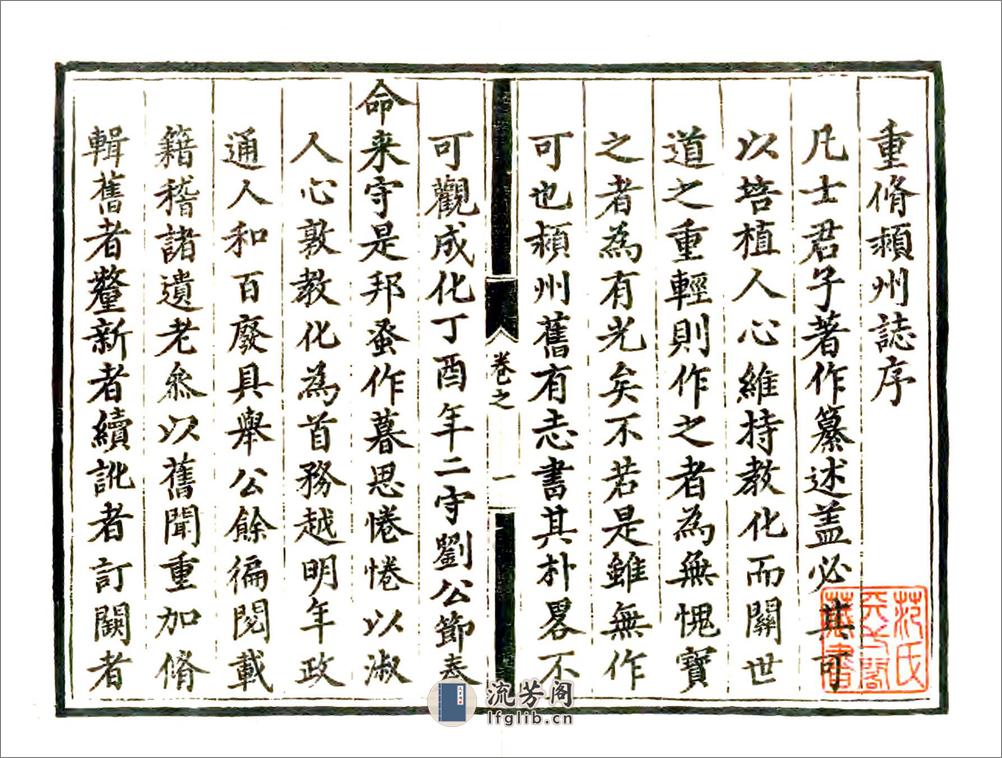 重脩潁州誌序
凡士君子著作纂述盖必其可
以培植人心維持教化而關世
道之重輕則作之者為無愧寶
之者為有光矣不若是雖無作
可也潁州舊有志書其朴畧不
卷之
一
可觀成化丁酉年二守劉公節奉
命来守是邦蚤作暮思惓惓以淑
人心敦教化為首務越明年政
通人和百廢具舉公餘徧閱載
籍稽諸遺老叅以舊聞重加脩
輯舊者釐新者續訛者訂闕者
范氏
天一閣
藏書
流芳阁
lfglib.cn